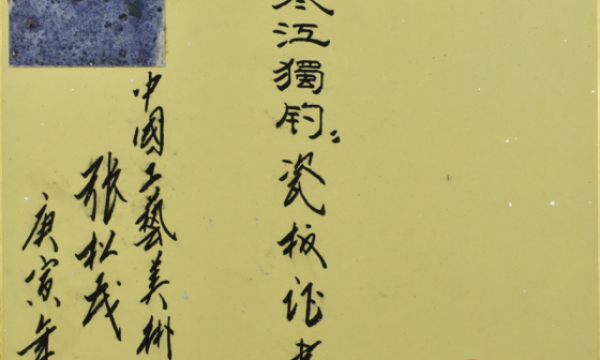 寒江獨釣〃瓷板证书
中國工藝美術
張松茂
庚寅年